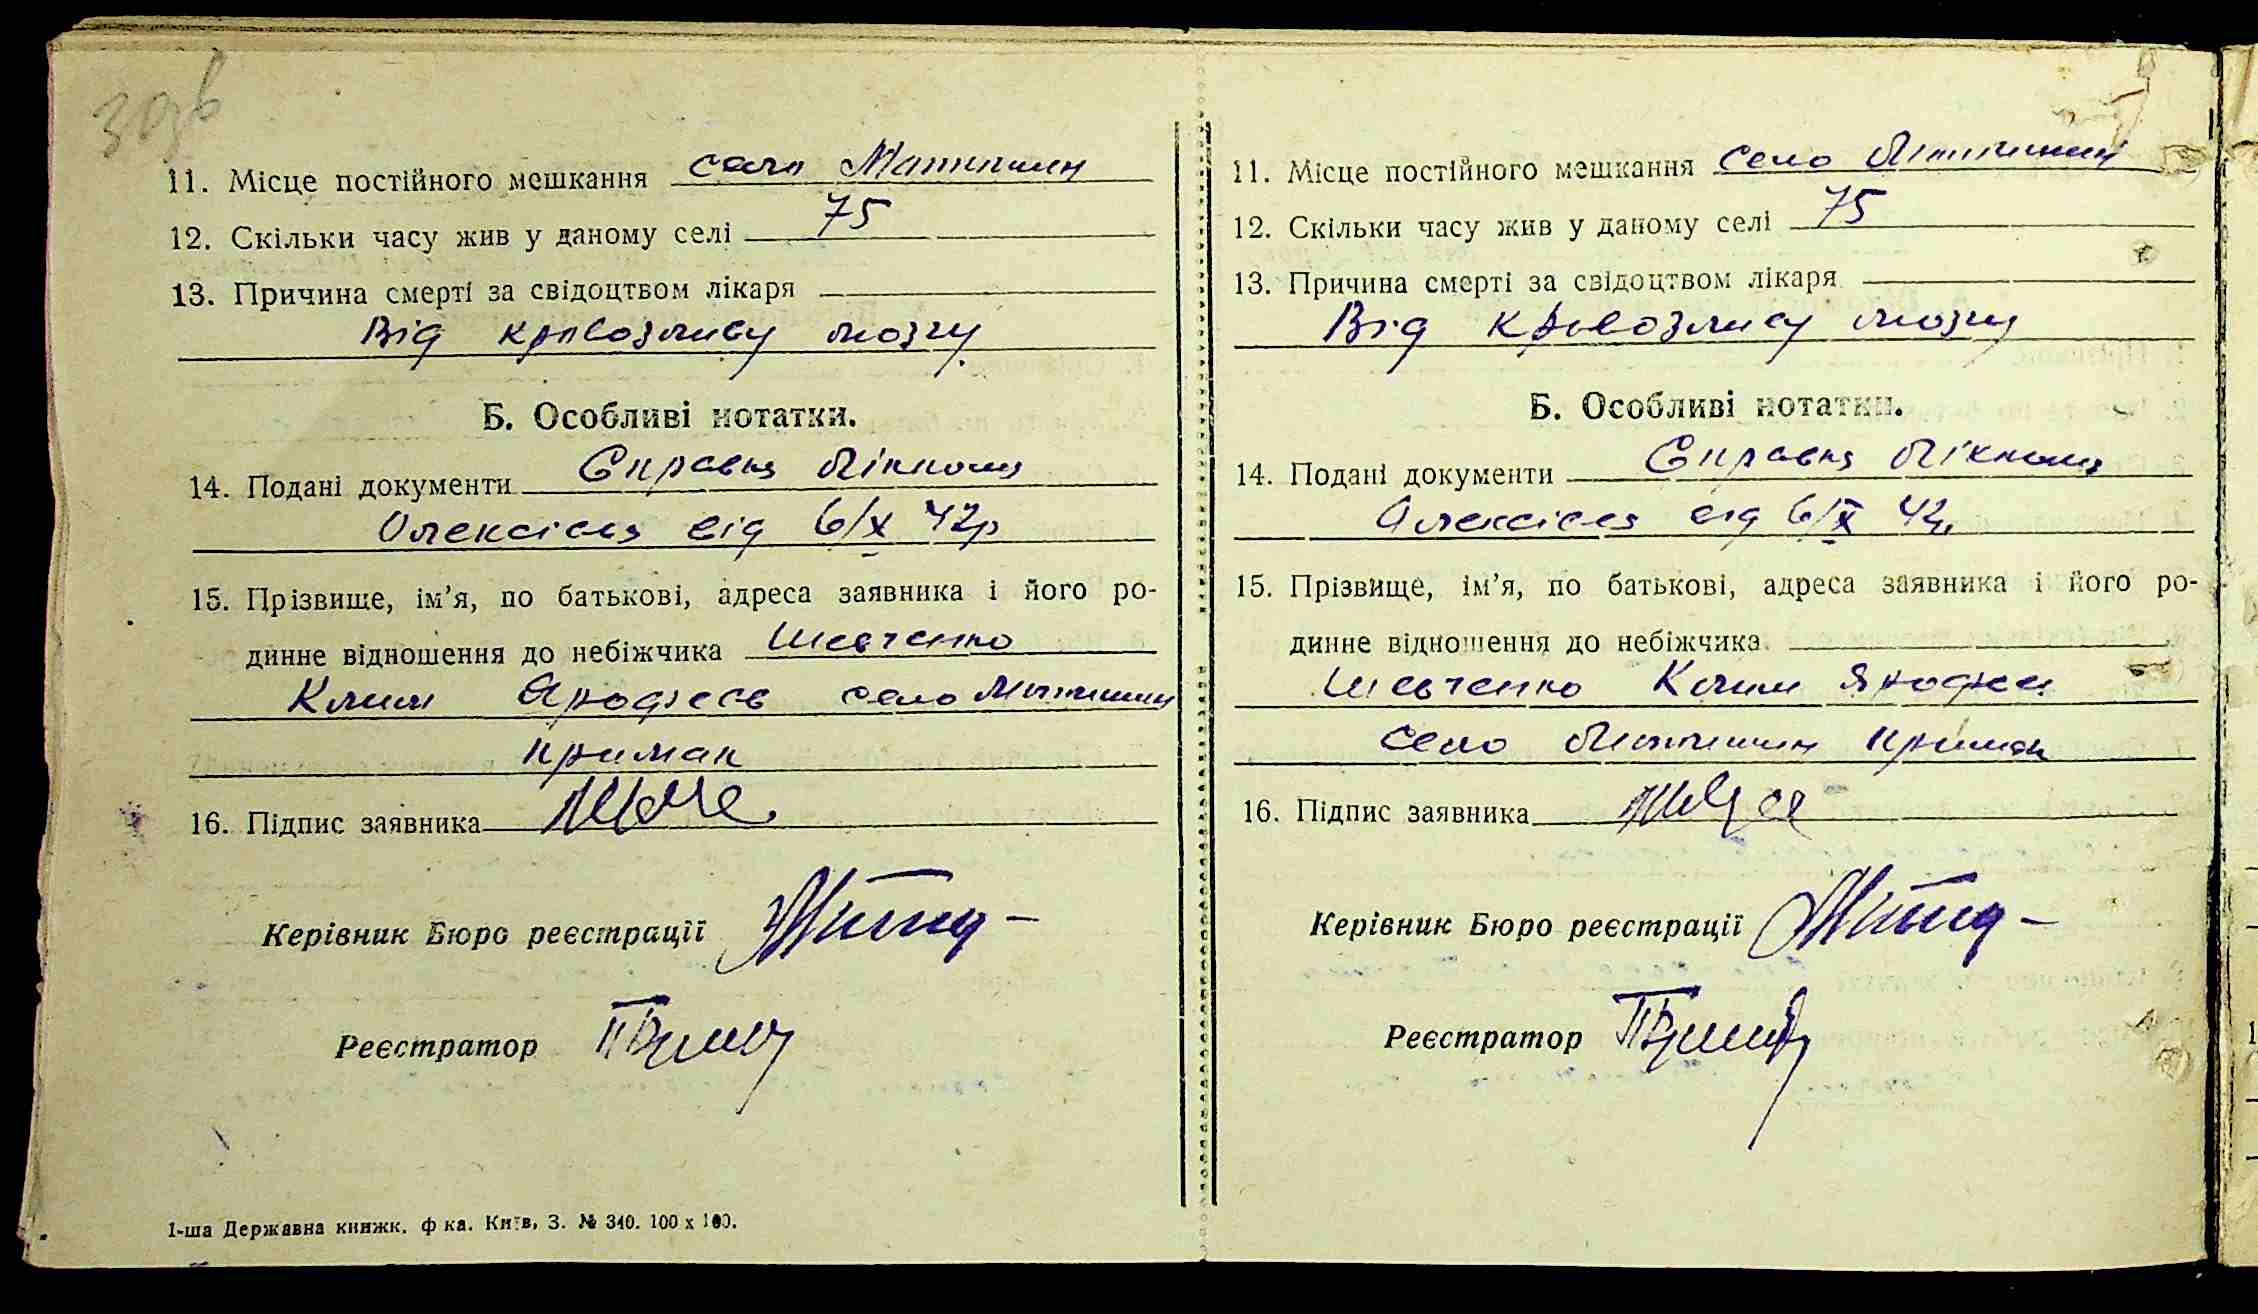 30зв
11. Місце постійного мешкання село Мотижин
12. Скільки часу жив у даному селі 75
13. Причина смерті за свідоцтвом лікаря
Від кровозливу мозгу
Б. Особливі нотатки.
14. Подані документи Справка
Олексієв від 6/X 42р
15. Прізвище, ім’я, по батькові, адреса заявника і його ро-
динне відношення до небіжчика Шевченко
Клим село Мотижин
примак
16. Підпис заявника
Керівник Бюро реєстрації
Реєстратор
1-ша Державна книжк. ф ка. Київ, З. № 340. 100 х 100.
11. Місце постійного мешкання село Мотижин
12. Скільки часу жив у даному селі 75
13. Причина смерті за свідоцтвом лікаря
Від кровозлису мозгу
Б. Особливі нотатки.
14. Подані документи Справка
від 6/X 42р
15. Прізвище, ім’я, по батькові, адреса заявника і його ро-
динне відношення до небіжчика
Шевченко Клим
село Мотижин примак
16. Підпис заявника
Керівник Бюро реєстрації
Реєстратор